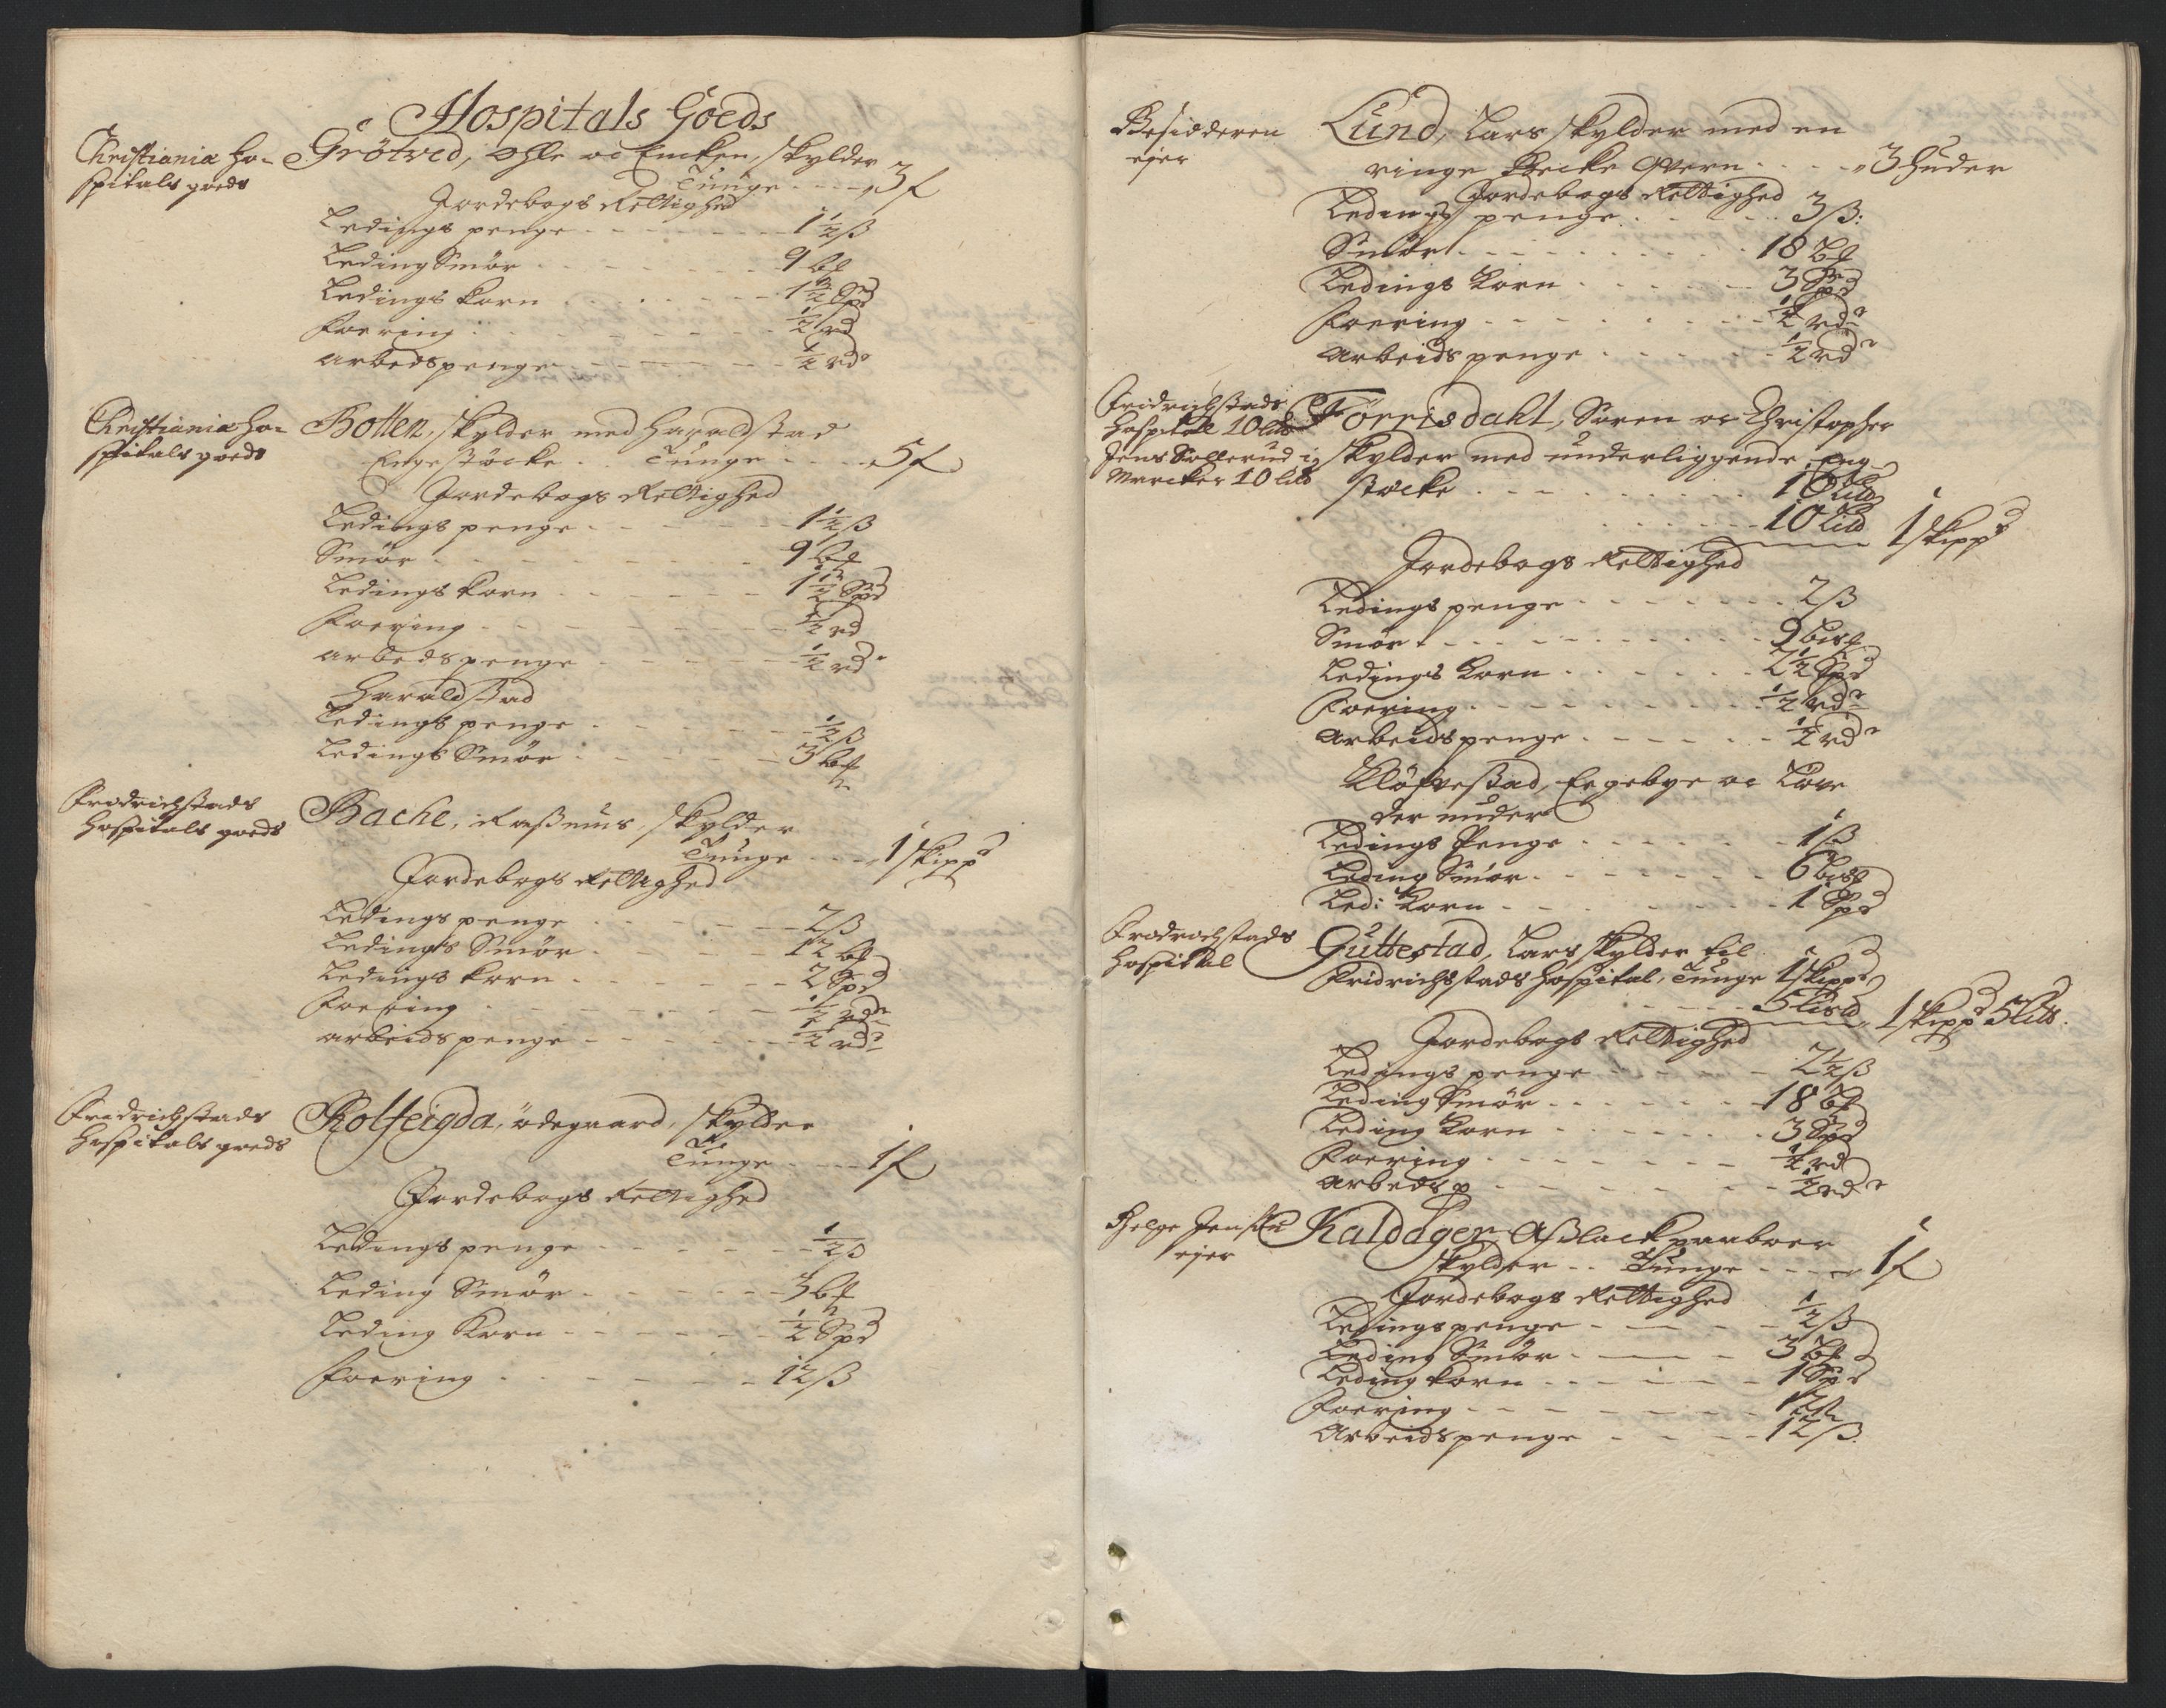 Hospitals Goeds
Christiania Ho-
spitals goeds
Grötved, Ohle oc Encken, skylder
Tunge - - - 3 f
Jordebogs Rettighed
Ledings penge - - - 1½ ß
Leding Smör - - - 9 bf
Ledings korn - - - 1½ Spd
Foering - - - ½ rd
Arbedspenge - - - ½ rdr
Christiania Ho-
spitals goeds
Botten, skylder med Haraldstad
Engestöcke . Tunge - - - 5 f
Jordebogs Rettighed
Ledings penge - - - 1½ ß
Smör - - - 9 bf
Ledings korn - - - 1½ Spd
Foering - - - ½ rd
Arbedspenge - - - ½ rdr
Haraldstad
Ledings penge - - - ½ ß
Ledings Smör - - - 3 bf
Fredrichstads
Hospitals goeds
Bache, Rasmus, skylder
Tunge - - - 1 skippd
Jordebogs Rettighed
Ledings penge - - - 2 ß
Ledings Smör - - - 12 bf
Ledings korn - - - 2 Spd
Foering - - - ½ rdr
Arbeidspenge - - - ½ rdr
Fredrichstads
Hospitals goeds
Kolfeigda, ödegaard, skylder
Tunge - - - 1 f
Jordebogs Rettighed
Ledings penge - - - ½ ß
Leding Smör - - - 3 bf
Leding Korn - - - ½ Spd
Foering - - - 12 ß
Besidderen
ejer
Lund, Lars skylder med en
ringe Becke Qvern - - - 3 Huder
Jordebogs Rettighed
Ledings penge - - - 3 ß:
Smör - - - 18 bf
Ledings Korn - - - 3 Spd
Foering - - - ½ rdr
Arbeids penge - - - ½ rdr
Fridrichstads
Hospital 10 lld
Jens Sollerud i
Mercker 10 lld
Törrisdahl, Sören oc Christopher
skylder med underliggende Eng-
stöcke - - - 10 lld
- - - 10 lld 1 skippd
Jordebogs Rettighed
Ledings penge - - - 2 ß
Smör - - - 9 bisf
Ledings Korn - - - 2½ Spd
Foering - - - ½ rdr
Arbeidspenge - - - ½ rdr
Klöfvestad, Engebye oc Löve
der under
Ledings Penge - - - 1 ß
Leding Smör - - - 6 bisf
Led: Korn - - - 1 Spd
Fredrichstads
Hospital
Guttestad, Lars skylder til
Fridrichstads Hospital, Tunge 1 skippd
- - - 5 Lisld 1 skippd 5 llds.
Jordebogs Rettighed
Ledings penge - - - 2½ ß
Leding Smör - - - 18 bf
Leding Korn - - - 3 Spd
Foering - - - ½ rd
Arbeds p - - - ½ rdr
Helge
ejer
Kaldager Aßlack paaboer
skylder - - Tunge - - - 1 f
Jordebogs Rettighed
Ledingspenge - - - ½ ß
Leding Smör - - - 3 bf
Leding korn - - - 1 Spd
Foering - - - 12 ß
Arbeidspenge - - - 12 ß.